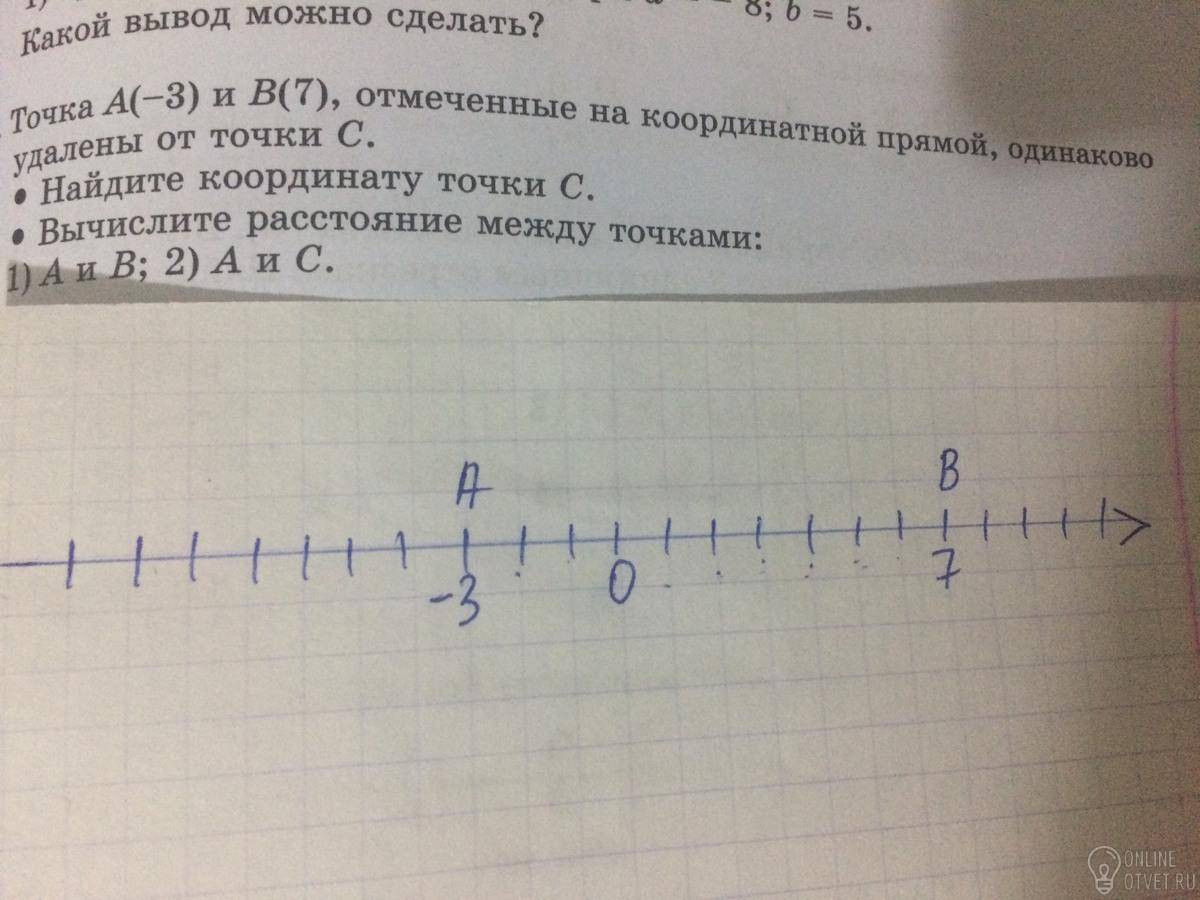 8; b = 5.
Какой вывод можно сделать?
Точка A(−3) и B(7), отмеченные на координатной прямой, одинаково
удалены от точки C.
• Найдите координату точки C.
• Вычислите расстояние между точками:
1) A и B; 2) A и C.
A B
-3 0 7
ONLINE
OTVET.RU